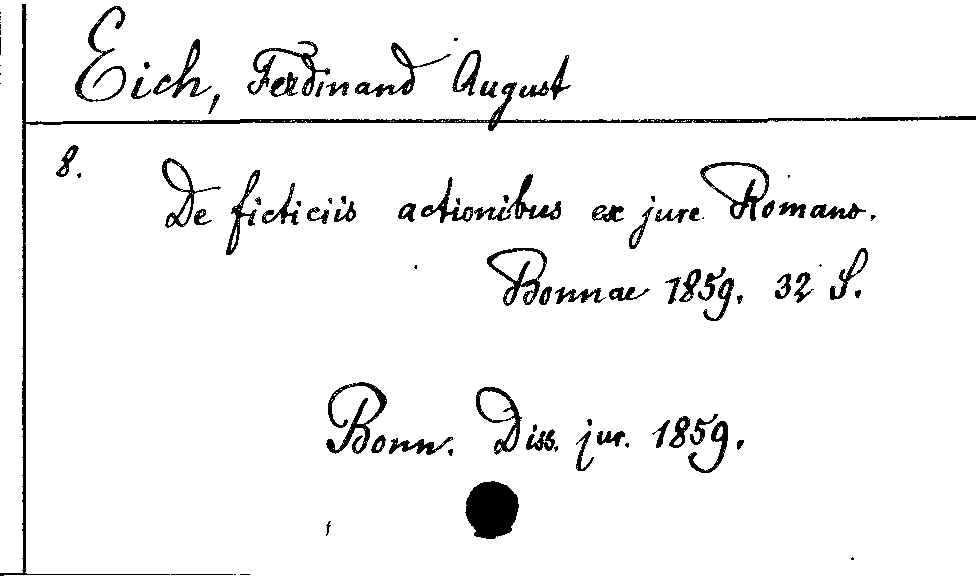 Eich, Ferdinand August
8.
De ficticiis actionibus ex jure Romano.
Bonnae 1859. 32 S.
Bonn. Diss. jur. 1859.